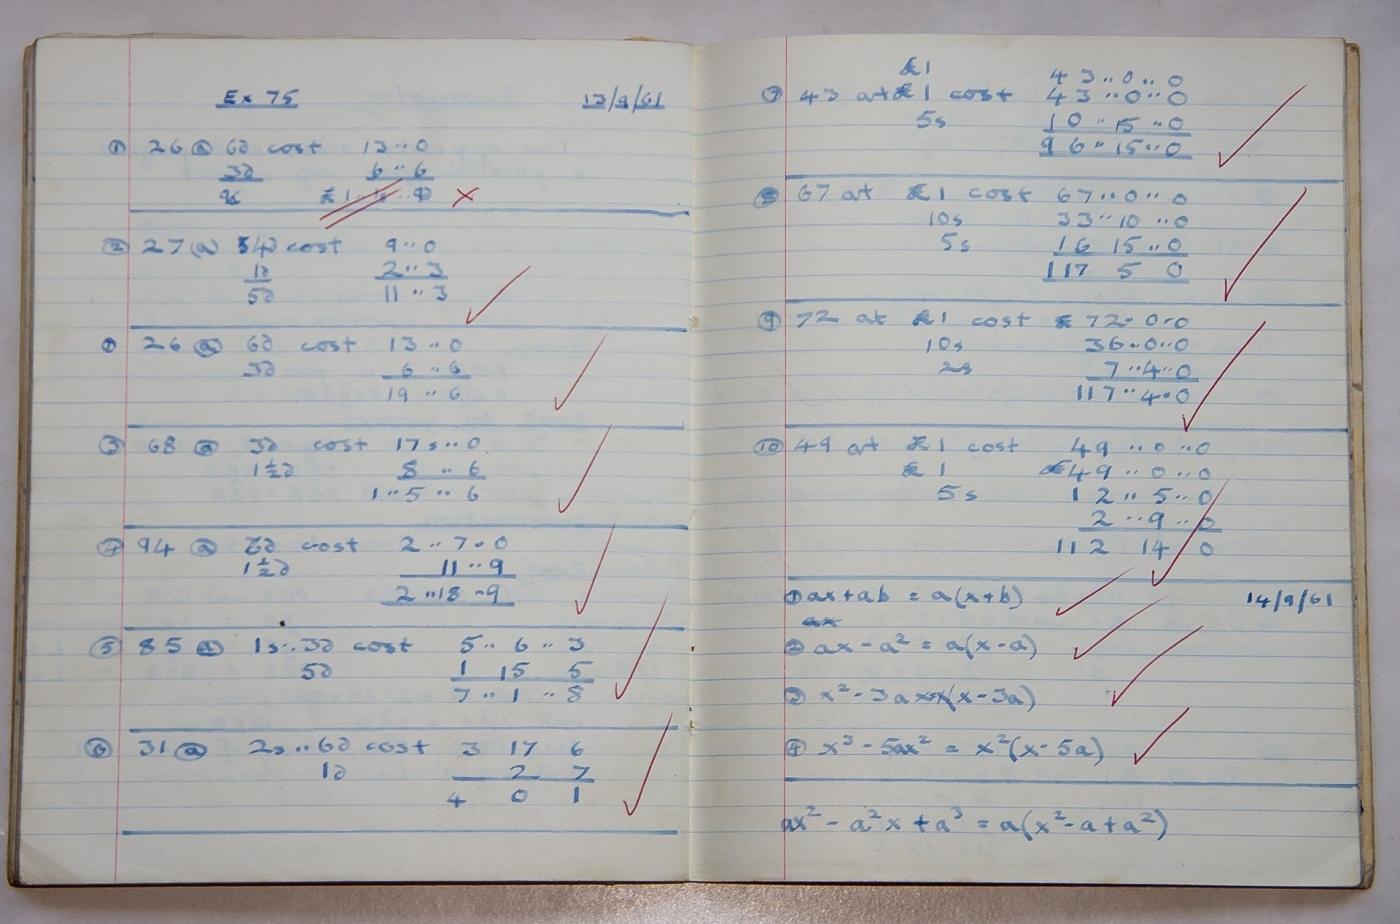 Ex 75 13/9/61
① 26 @ 6d cost 13 .. 0
3d 6 .. 6
9d
② 27 @ 4d cost 9 .. 0
1d 2 .. 3
5d 11 .. 3
① 26 @ 6d cost 13 .. 0
3d 6 .. 6
19 .. 6
③ 68 @ 3d cost 17s .. 0
1½d 8 .. 6
1 .. 5 .. 6
④ 94 @ 6d cost 2 .. 7 . 0
1½d 11 .. 9
2 .. 18 .. 9
⑤ 85 @ 1s .. 3d cost 5 .. 6 .. 3
5d 1 15 5
7 .. 1 .. 8
⑥ 31 @ 2s .. 6d cost 3 17 6
1d 2 7
4 0 1
£1 43 .. 0 .. 0
⑦ 43 at £1 cost 43 .. 0 .. 0
5s 10 .. 15 .. 0
96 .. 15 .. 0
⑧ 67 at £1 cost 67 .. 0 .. 0
10s 33 .. 10 .. 0
5s 16 15 .. 0
117 5 0
⑨ 72 at £1 cost £ 72 . 0 . 0
10s 36 .. 0 .. 0
2s 7 .. 4 .. 0
117 .. 4 . 0
⑩ 49 at £1 cost 49 .. 0 .. 0
£1 49 .. 0 .. 0
5s 12 .. 5 .. 0
2 .. 9 .. 0
112 14 0
① ax + ab = a(x+b) 14/9/61
ax
② ax - a² = a(x-a)
③ x² - 3ax x(x - 3a)
④ x³ - 5ax² = x²(x - 5a)
ax² - a²x + a³ = a(x² - a + a²)